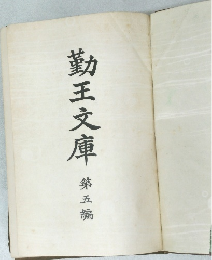 勤王文庫
第五編